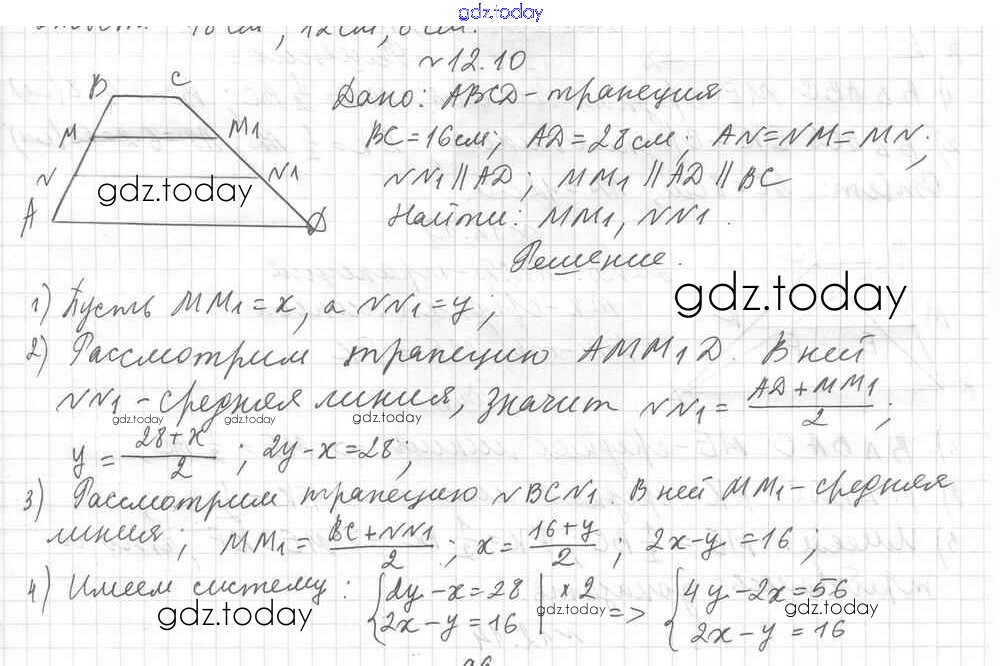 gdz.today
10 см, 12 см, 8 см.
№12.10
B C
M M1
N N1
A D
Дано: ABCD - трапеция
BC = 16 см; AD = 28 см; AN = NM = MN;
NN1 || AD; MM1 || AD || BC
Найти: MM1, NN1.
Решение.
gdz.today
gdz.today
1) Пусть MM1 = x, а NN1 = y;
2) Рассмотрим трапецию AMM1D. В ней
NN1 - средняя линия, значит NN1 = (AD + MM1)/2;
gdz.today gdz.today gdz.today
y = (28 + x)/2; 2y - x = 28;
3) Рассмотрим трапецию NBCN1. В ней MM1 - средняя
линия; MM1 = (BC + NN1)/2; x = (16 + y)/2; 2x - y = 16;
4) Имеем систему: { 2y - x = 28 | × 2 => { 4y - 2x = 56
{ 2x - y = 16 | { 2x - y = 16
gdz.today gdz.today gdz.today